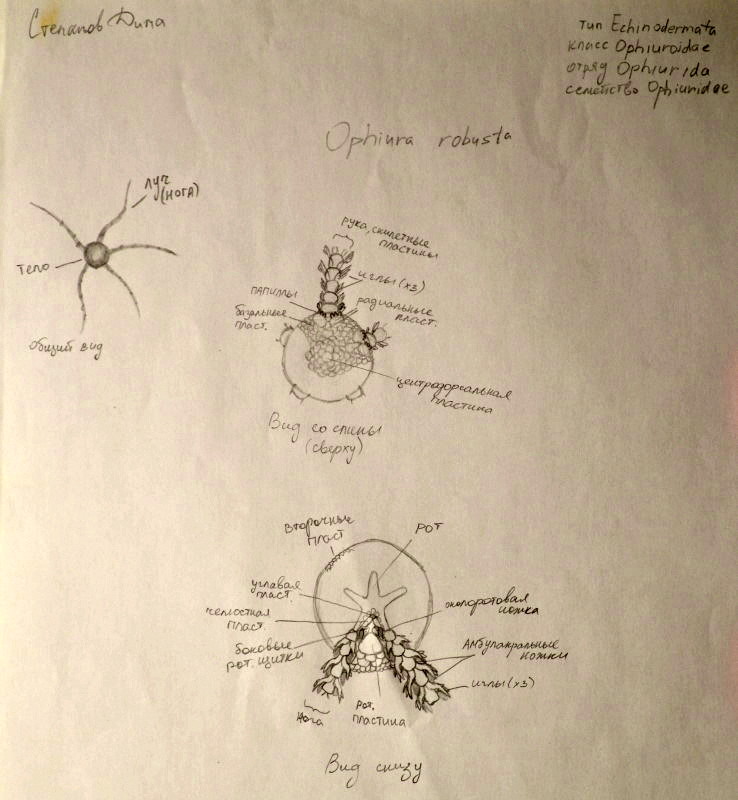 Степанов Дима
тип Echinodermata
класс Ophiuroidae
отряд Ophiurida
семейство Ophiuridae
Ophiura robusta
луч
(нога)
тело
общий вид
рука, скилетные
пластины
иглы (x3)
папиллы
базальные
пласт.
радиальные
пласт.
центродорсальная
пластина
Вид со спины
(сверху)
вторичные
пласт
рот
угловая
пласт.
челюстная
пласт.
боковые
рот. щитки
околоротовая
ножка
Амбулакральные
ножки
иглы (x3)
Нога
рот.
пластина
Вид снизу